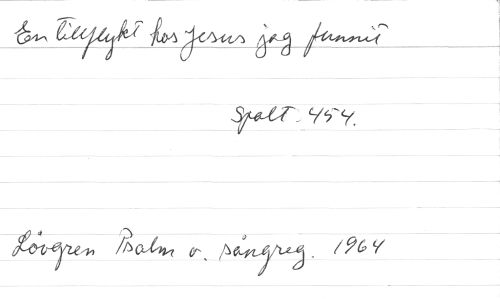 En tillflykt hos Jesus jag funnit
Spalt. 454.
Lövgren Psalm o. sångreg. 1964